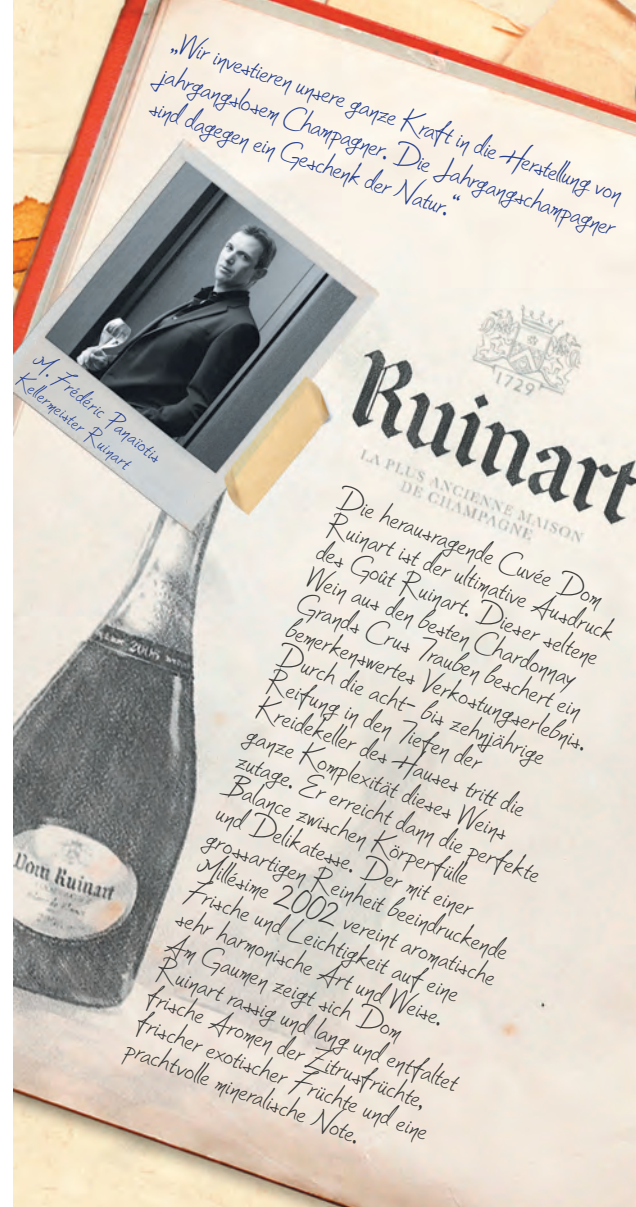 „Wir investieren unsere ganze Kraft in die Herstellung von
jahrgangslosem Champagner. Die Jahrgangschampagner
sind dagegen ein Geschenk der Natur.“
M. Frédéric Panaïotis
Kellermeister Ruinart
1729
Ruinart
LA PLUS ANCIENNE MAISON
DE CHAMPAGNE
Die herausragende Cuvée Dom
Ruinart ist der ultimative Ausdruck
des Goût Ruinart. Dieser seltene
Wein aus den besten Chardonnay
Grands Crus Trauben beschert ein
bemerkenswertes Verkostungserlebnis.
Durch die acht- bis zehnjährige
Reifung in den Tiefen der
Kreidekeller des Hauses tritt die
ganze Komplexität dieses Weins
zutage. Er erreicht dann die perfekte
Balance zwischen Körperfülle
und Delikatesse. Der mit einer
grossartigen Reinheit beeindruckende
Millésime 2002 vereint aromatische
Frische und Leichtigkeit auf eine
sehr harmonische Art und Weise.
Am Gaumen zeigt sich Dom
Ruinart rassig und lang und entfaltet
frische Aromen der Zitrusfrüchte,
frischer exotischer Früchte und eine
prachtvolle mineralische Note.
Dom Ruinart